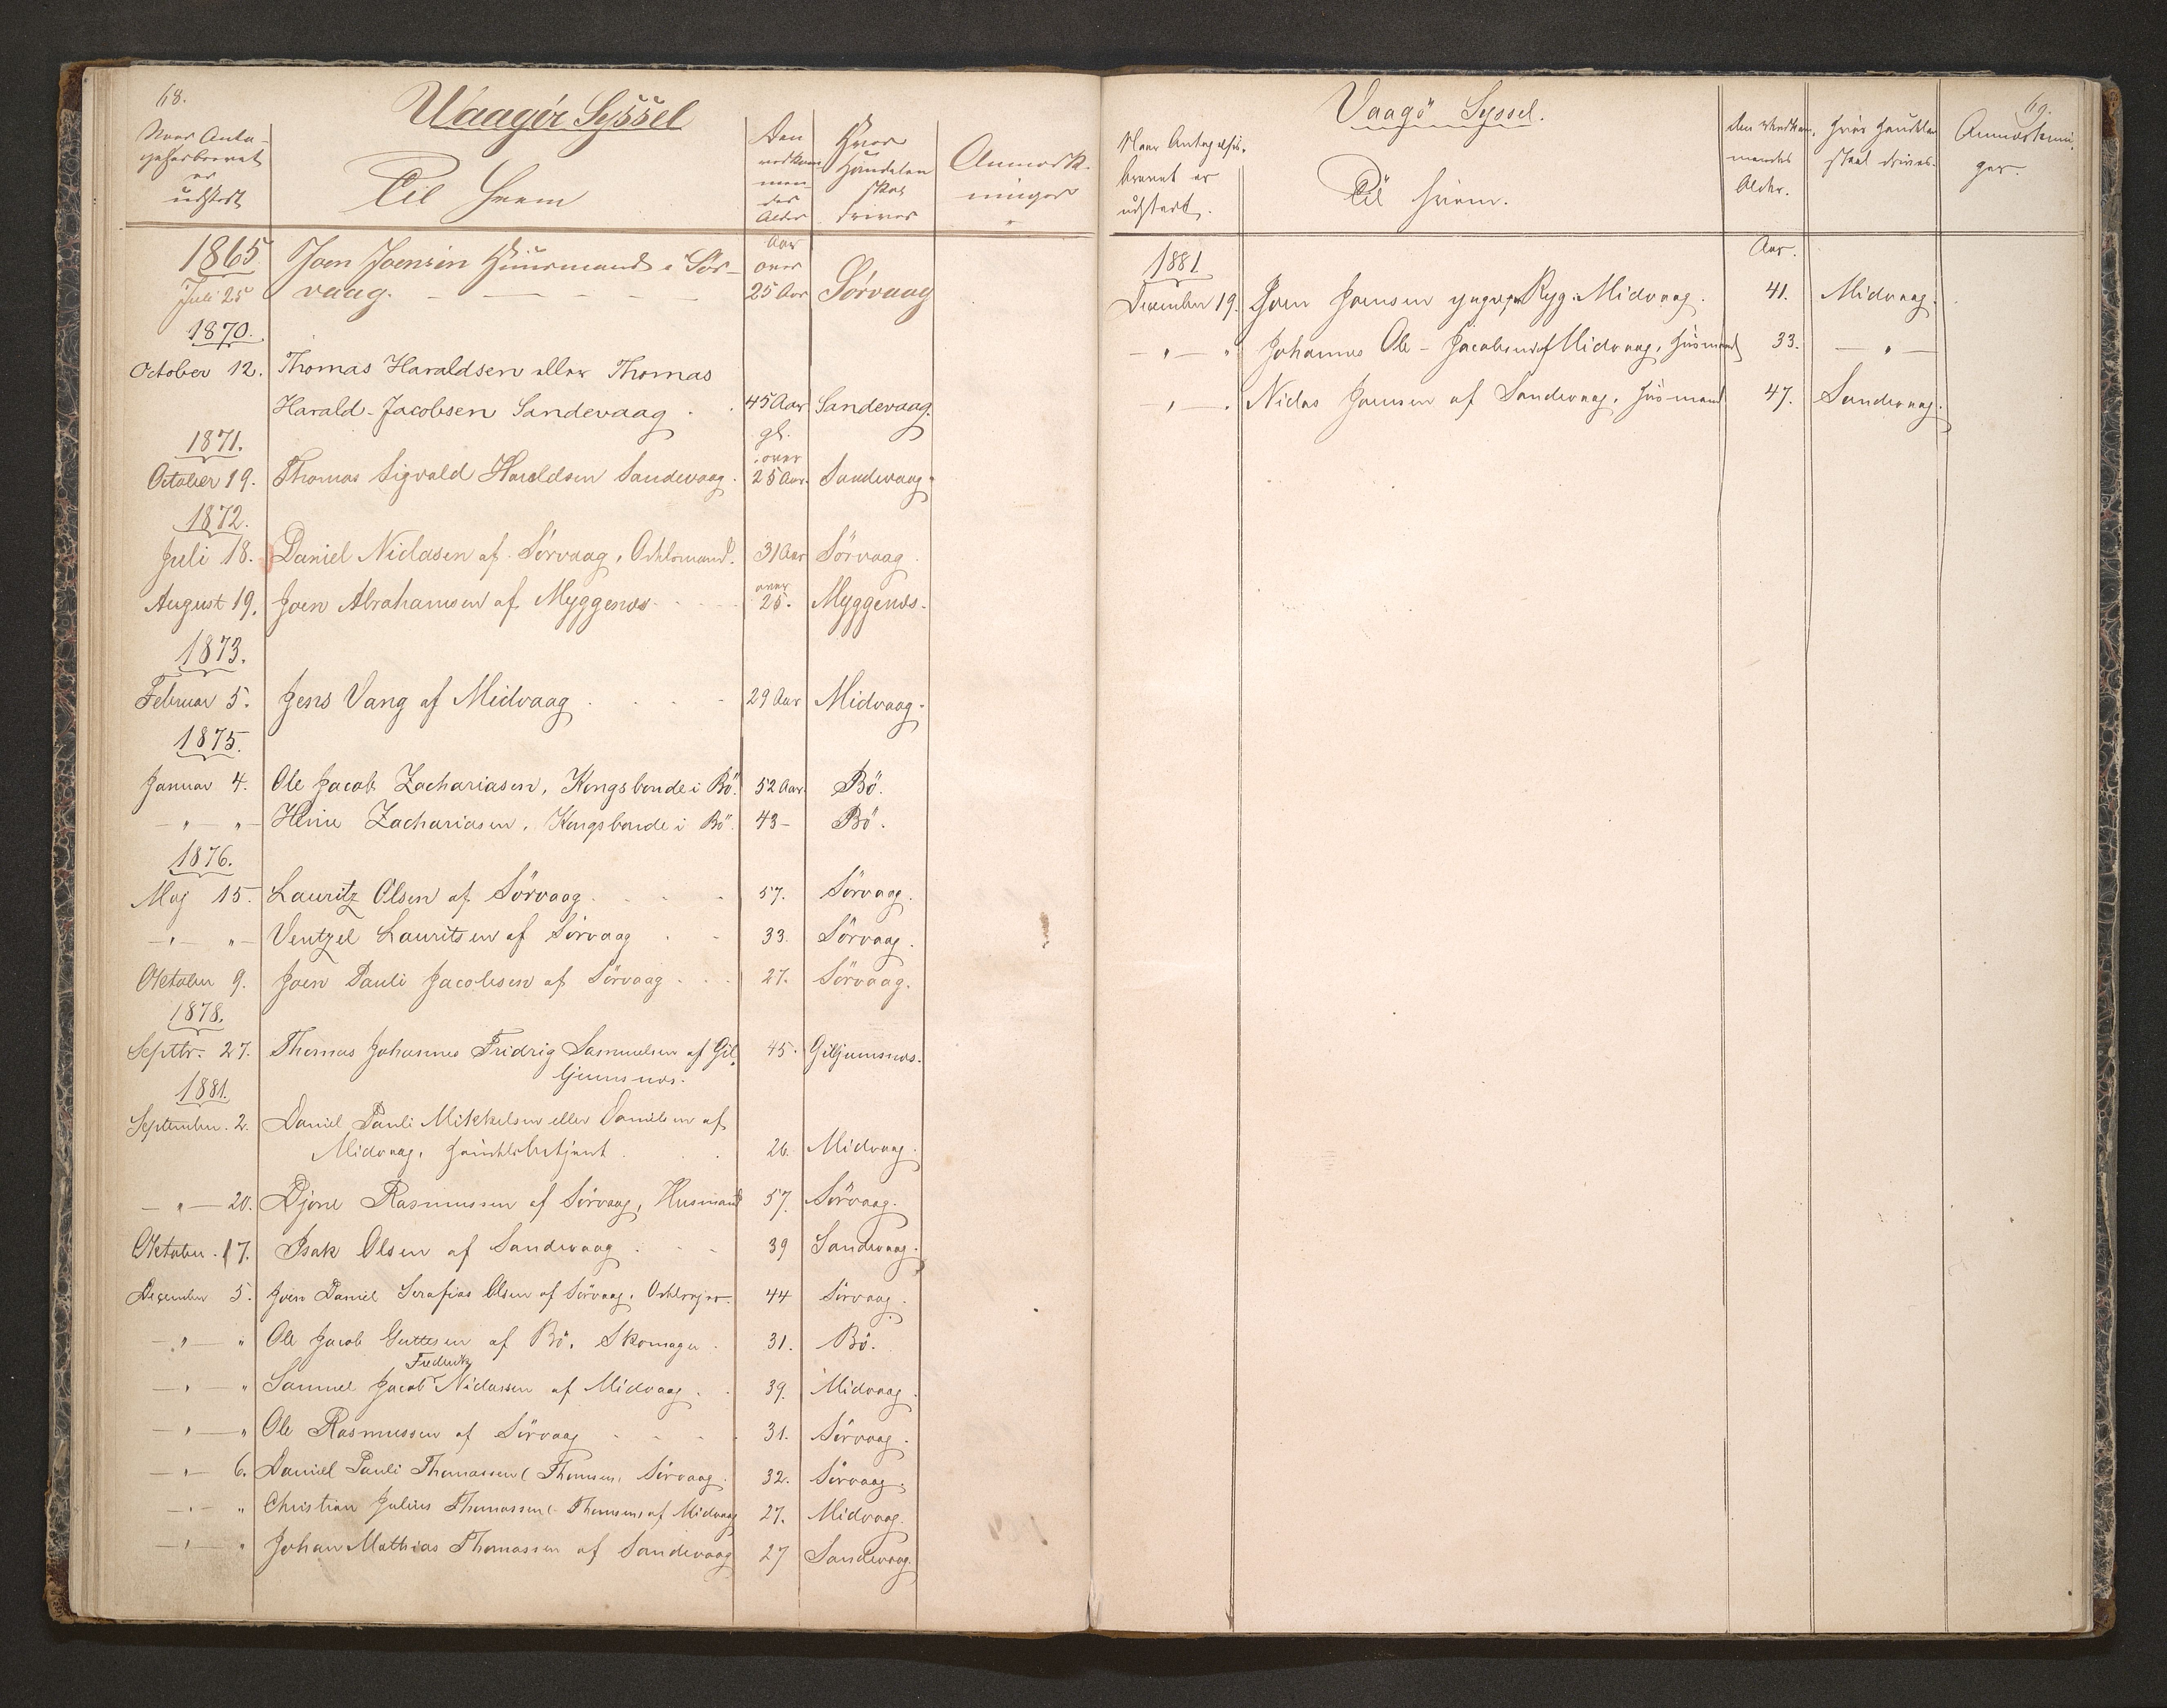 68.
Vaagöe Syssel
Naar Anta-
gelsesbrevet
er
udstedt
Til Hvem
Den
vedkom
men
des
Alder
Hvor
Handelen
skal
drives
Anmærk-
ninger
1865
Aar
Joen Joensen Huusmand i Sör-
over
Juli 25
vaag.
25 Aar
Sörvaag
1870.
October 12.
Thomas Haraldsen eller Thomas
Harald-Jacobsen Sandevaag
45 Aar
Sandevaag.
gl.
1871.
over
October 19.
Thomas Sigvald Haraldsen Sandevaag.
25 Aar.
Sandevaag.
1872.
Juli 18.
Daniel Niclasen af Sörvaag, Odelsmand.
31 Aar
Sörvaag.
over
August 19.
Joen Abrahamsen af Myggenæs
25.
Myggenæs.
1873.
Februar 5.
Jens Vang af Midvaag
29 Aar
Midvaag.
1875.
Januar 4.
Ole Jacob Zachariasen, Kongsbonde i Bö.
52 Aar.
Bö.
— " — " —
Heine Zachariasen, Kongsbonde i Bö.
43 -
Bö.
1876.
Maj 15.
Lauritz Olsen af Sörvaag.
57.
Sörvaag.
— " — " —
Ventzel Lauritsen af Sörvaag
33.
Sörvaag.
Oktober 9.
Joen Pauli Jacobsen af Sörvaag
27.
Sörvaag.
1878.
Septbr. 27.
Thomas Johannes Fridrig Samuelsen af Gil-
45.
Giljumsnæs.
ljumsnæs.
1881.
September. 2.
Daniel Pauli Mikkelsen eller Danielsen af
Midvaag, Handelsbetjent
26.
Midvaag.
— " — 20.
Djone Rasmussen af Sörvaag, Husmand
57.
Sörvaag.
Oktober. 17.
Isak Olsen af Sandevaag
39
Sandevaag.
December 5.
Joen Daniel Serafias Olsen af Sörvaag,
44
Sörvaag.
— " — "
Ole Jacob Guttesen af Bö, Skomager.
31.
Bö.
Frederik
— " — "
Samuel Jacob Niclassen af Midvaag.
39.
Midvaag.
— " — "
Ole Rasmussen af Sörvaag
31.
Sörvaag.
— " — 6.
Daniel Pauli Thomassen (Thomsen) Sörvaag.
32.
Sörvaag.
— " — "
Christian Julius Thomassen (Thomsen) af Midvaag
27.
Midvaag.
— " — "
Johan Mathias Thomassen af Sandevaag
27
Sandevaag.
69.
Vaagö Syssel.
Naar Antagelses-
brevet er
udstedt.
Til Hvem.
Den vedkom-
mendes
Alder.
Hvor Handelen
skal drives.
Anmærknin-
ger.
1881
Aar.
December 19.
Joen Joensen yngre Ryg. Midvaag.
41.
Midvaag.
— " — "
Johannes Ole-Jacobsen af Midvaag, Husmand
33.
— " —
— " — "
Niclas Joensen af Sandevaag, Husmand
47.
Sandevaag.